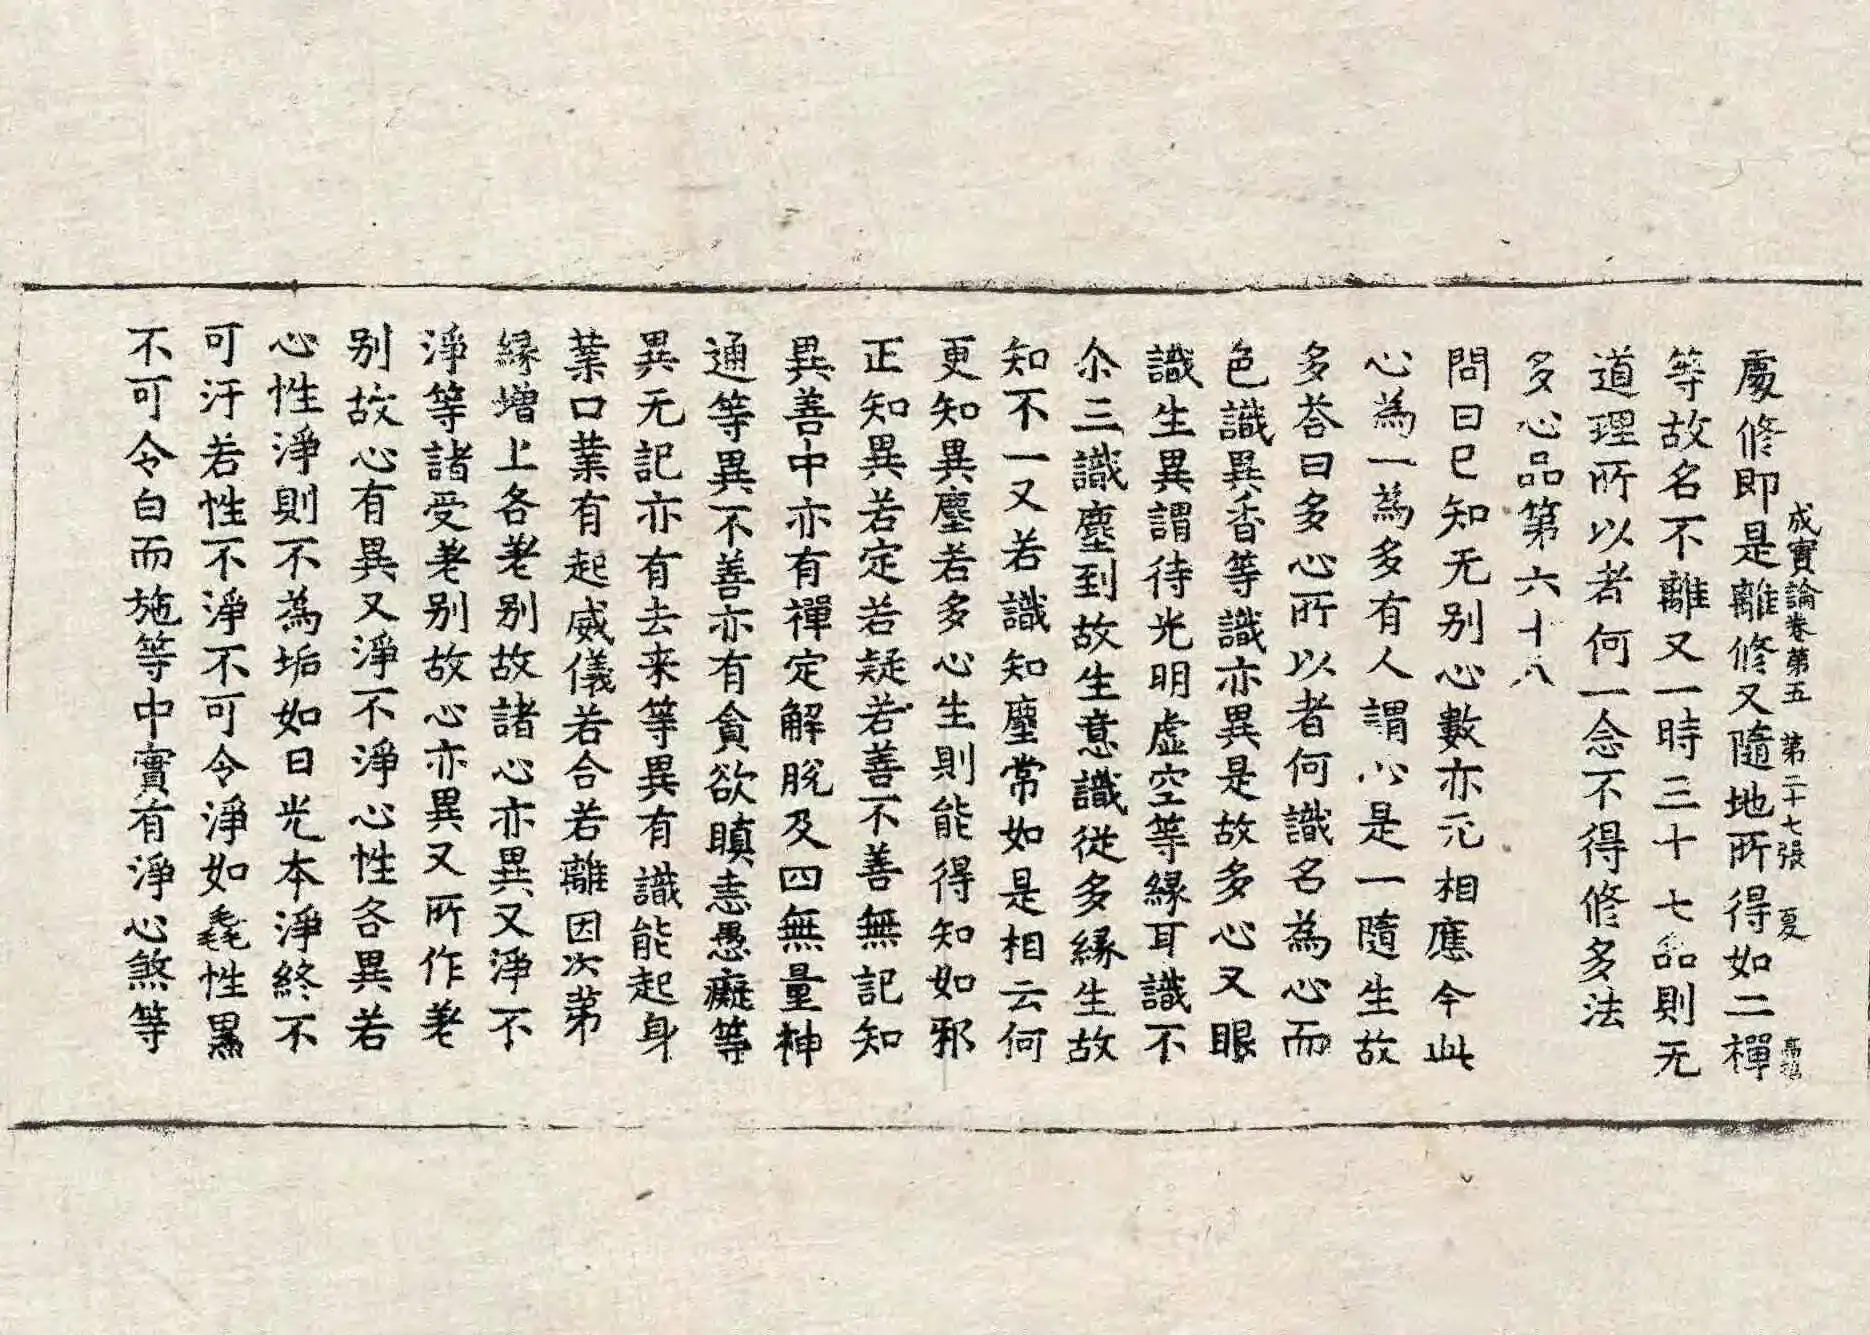 成實論卷第五 第二十七張 夏
處修即是離修又隨地所得如二禪
等故名不離又一時三十七品則无
道理所以者何一念不得修多法
多心品第六十八
問曰已知无别心數亦无相應今此
心為一為多有人謂心是一隨生故
多荅曰多心所以者何識名為心而
色識異香等識亦異是故多心又眼
識生異謂待光明虛空等緣耳識不
尒三識塵到故生意識從多緣生故
知不一又若識知塵常如是相云何
更知異塵若多心生則能得知如邪
正知異若定若疑若善不善無記知
異善中亦有禪定解脫及四無量神
通等異不善亦有貪欲瞋恚愚癡等
異无記亦有去来等異有識能起身
業口業有起威儀若合若離因次第
緣增上各差别故諸心亦異又淨不
淨等諸受差别故心亦異又所作差
别故心有異又淨不淨心性各異若
心性淨則不為垢如日光本淨終不
可汙若性不淨不可令淨如毳性黑
不可令白而施等中實有淨心煞等